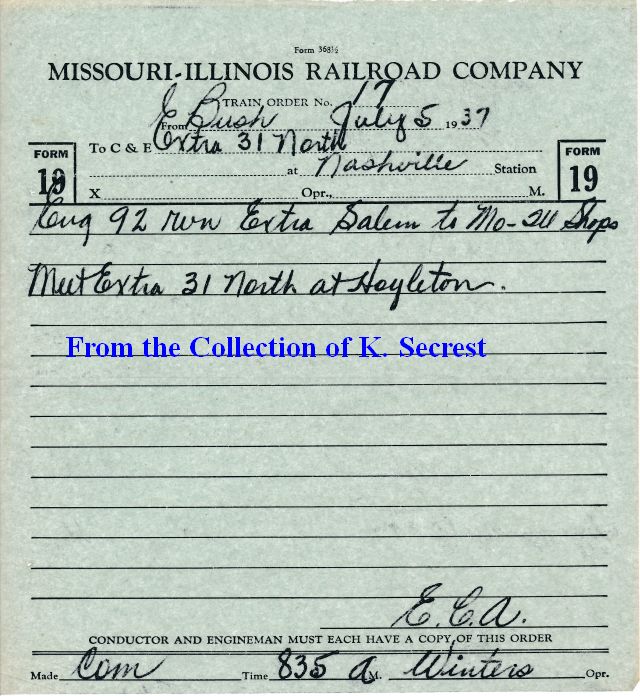 Form 368½
MISSOURI-ILLINOIS RAILROAD COMPANY
TRAIN ORDER No. 17
From E Bush July 5 1937
To C & E Extra 31 North
at Nashville Station
X Opr., M.
FORM 19
FORM 19
Eng 92 run Extra Salem to Mo-Ill Shops
Meet Extra 31 North at Hoyleton.
From the Collection of K. Secrest
E.C.A.
CONDUCTOR AND ENGINEMAN MUST EACH HAVE A COPY OF THIS ORDER
Made Com Time 835 A M. Winters Opr.